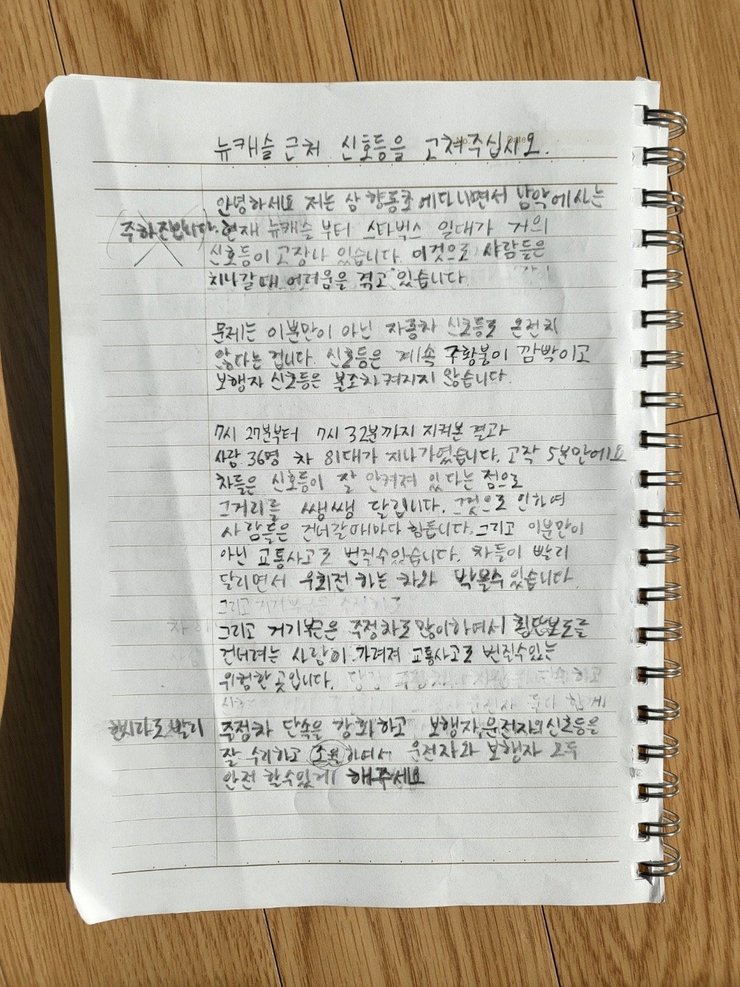 뉴캐슬 근처 신호등을 고쳐주십시오.
안녕하세요 저는 상향동초에다니면서 남악에사는
주하진입니다. 현재 뉴캐슬 부터 스타벅스 일대가 거의
신호등이 고장나 있습니다. 이것으로 사람들은
지나갈때 어려움을 겪고 있습니다.
문제는 이뿐만이 아닌 자동차 신호등도 온전치
않다는 겁니다. 신호등은 계속 주황불이 깜박이고
보행자 신호등은 불조차 켜지지 않습니다.
7시 27분부터 7시 32분까지 지켜본 결과
사람 36명 차 81대가 지나가였습니다. 고작 5분만에요
차들은 신호등이 잘 안켜져 있다는 점으로
그거리를 쌩쌩 달립니다. 그것으로 인하여
사람들은 건너갈때마다 힘듭니다. 그리고 이뿐만이
아닌 교통사고로 번질수있습니다. 차들이 빨리
달리면서 우회전 하는 차와 박을수 있습니다.
그리고 거기
그리고 거기부근은 주정차도많이하여서 횡단보도를
건너려는 사람이 가려져 교통사고로 번질수있는
위험한 곳입니다.
한시라도 빨리 주정차 단속을 강화하고 보행자,운전자의신호등을
잘 수리하고 하여서 운전자와 보행자 모두
안전 할수있게 해주세요